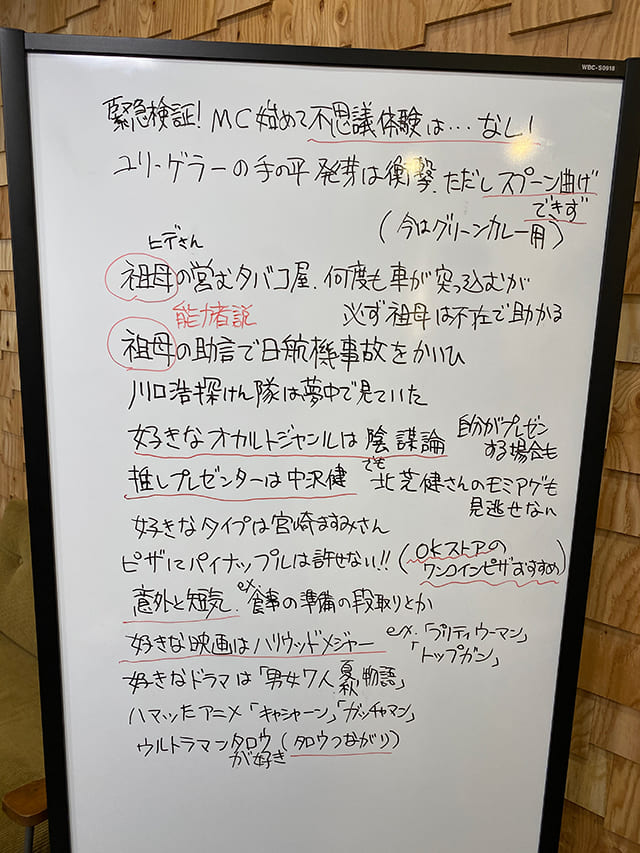 WBC-S0918
緊急検証！MC始めて不思議体験は…なし！
ユリ・ゲラーの手の平発芽は衝撃、ただしスプーン曲げ
できず
（今はグリーンカレー用）
ヒデさん
祖母の営むタバコ屋、何度も車が突っ込むが
能力者説
必ず祖母は不在で助かる
祖母の助言で日航機事故をかいひ
川口浩探けん隊は夢中で見ていた
好きなオカルトジャンルは陰謀論
自分がプレゼン
する場合も
推しプレゼンターは中沢健
でも北芝健さんのモミアゲも
見逃せない
好きなタイプは宮崎ますみさん
ピザにパイナップルは許せない!!（OKストアの
ワンコインピザおすすめ）
意外と短気、ex.食事の準備の段取りとか
好きな映画はハリウッドメジャー ex.「プリティウーマン」
「トップガン」
好きなドラマは「男女7人夏秋物語」
ハマッたアニメ「キャシャーン」「ガッチャマン」
ウルトラマンタロウ（タロウつながり）
が好き